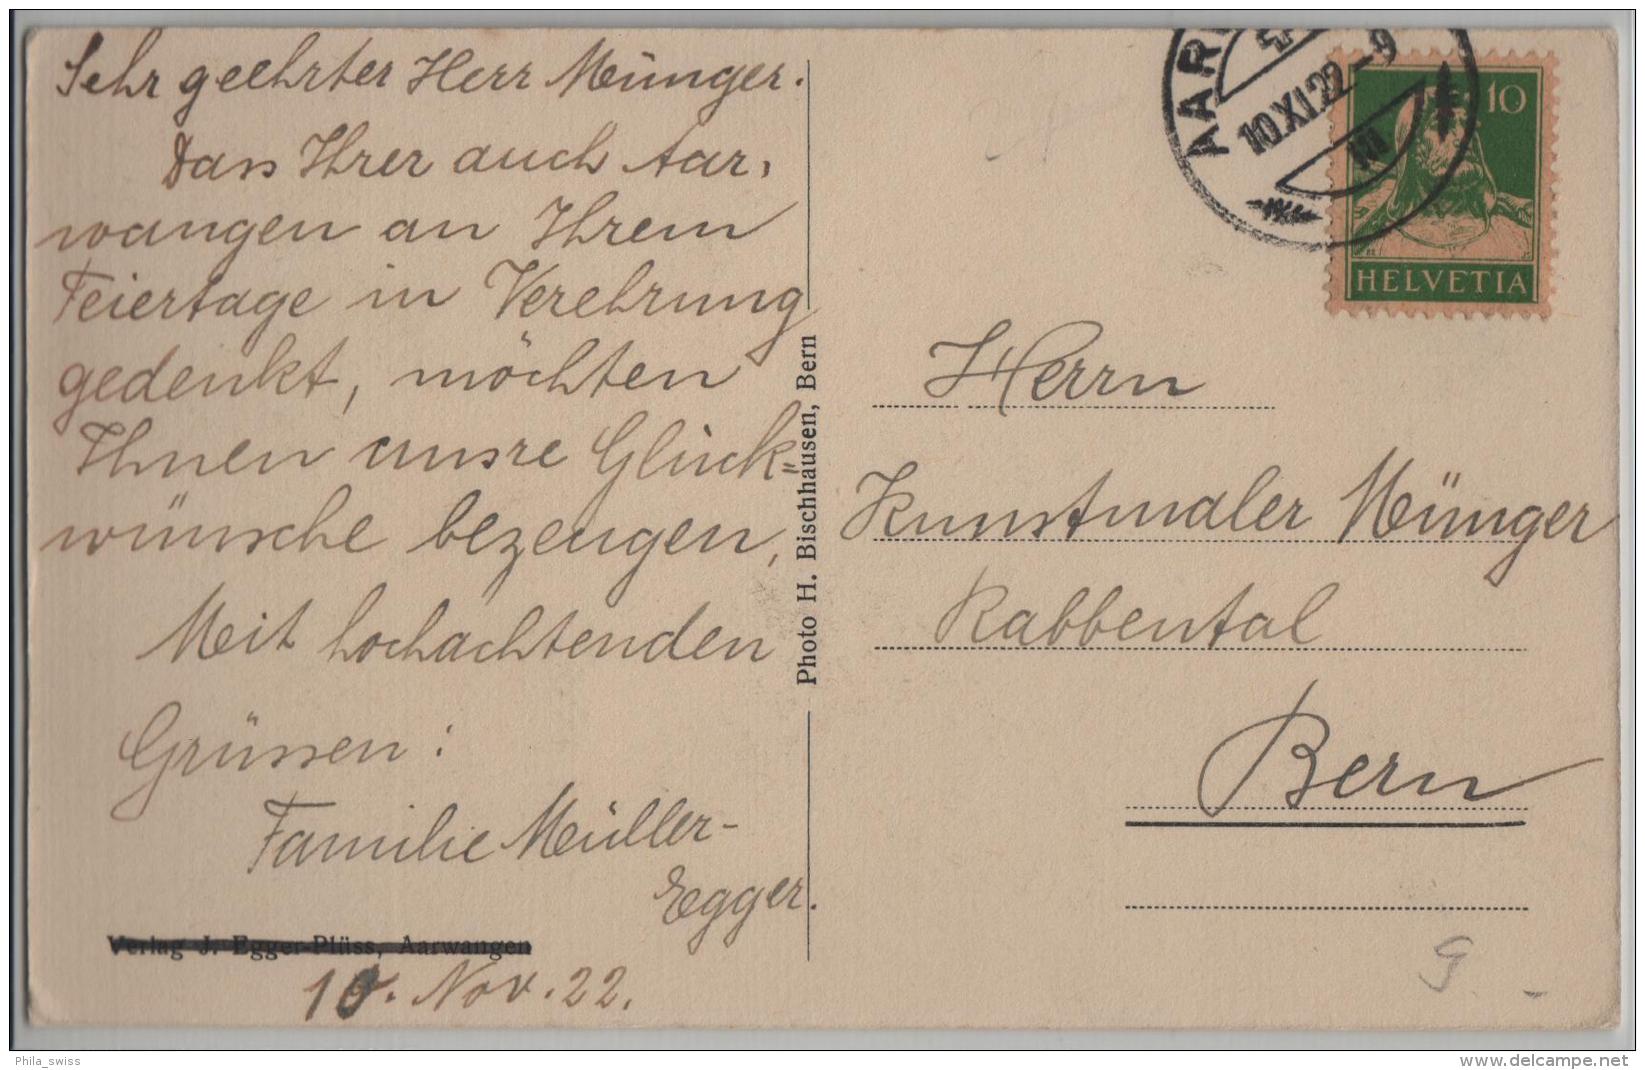 Sehr geehrter Herr Münger.
Dass Ihrer auch Aar-
wangen an Ihrem
Feiertage in Verehrung
gedenkt, möchten
Ihnen unsre Glück=
wünsche bezeugen,
Mit hochachtenden
Grüssen:
Familie Müller-
Egger.
Verlag J. Egger-Plüss, Aarwangen
10. Nov. 22.
Photo H. Bischhausen, Bern
10.XI.22.-9
10
HELVETIA
Herrn
Kunstmaler Münger
Rabbental
Bern
g -
Phila_swiss
www.delcampe.net